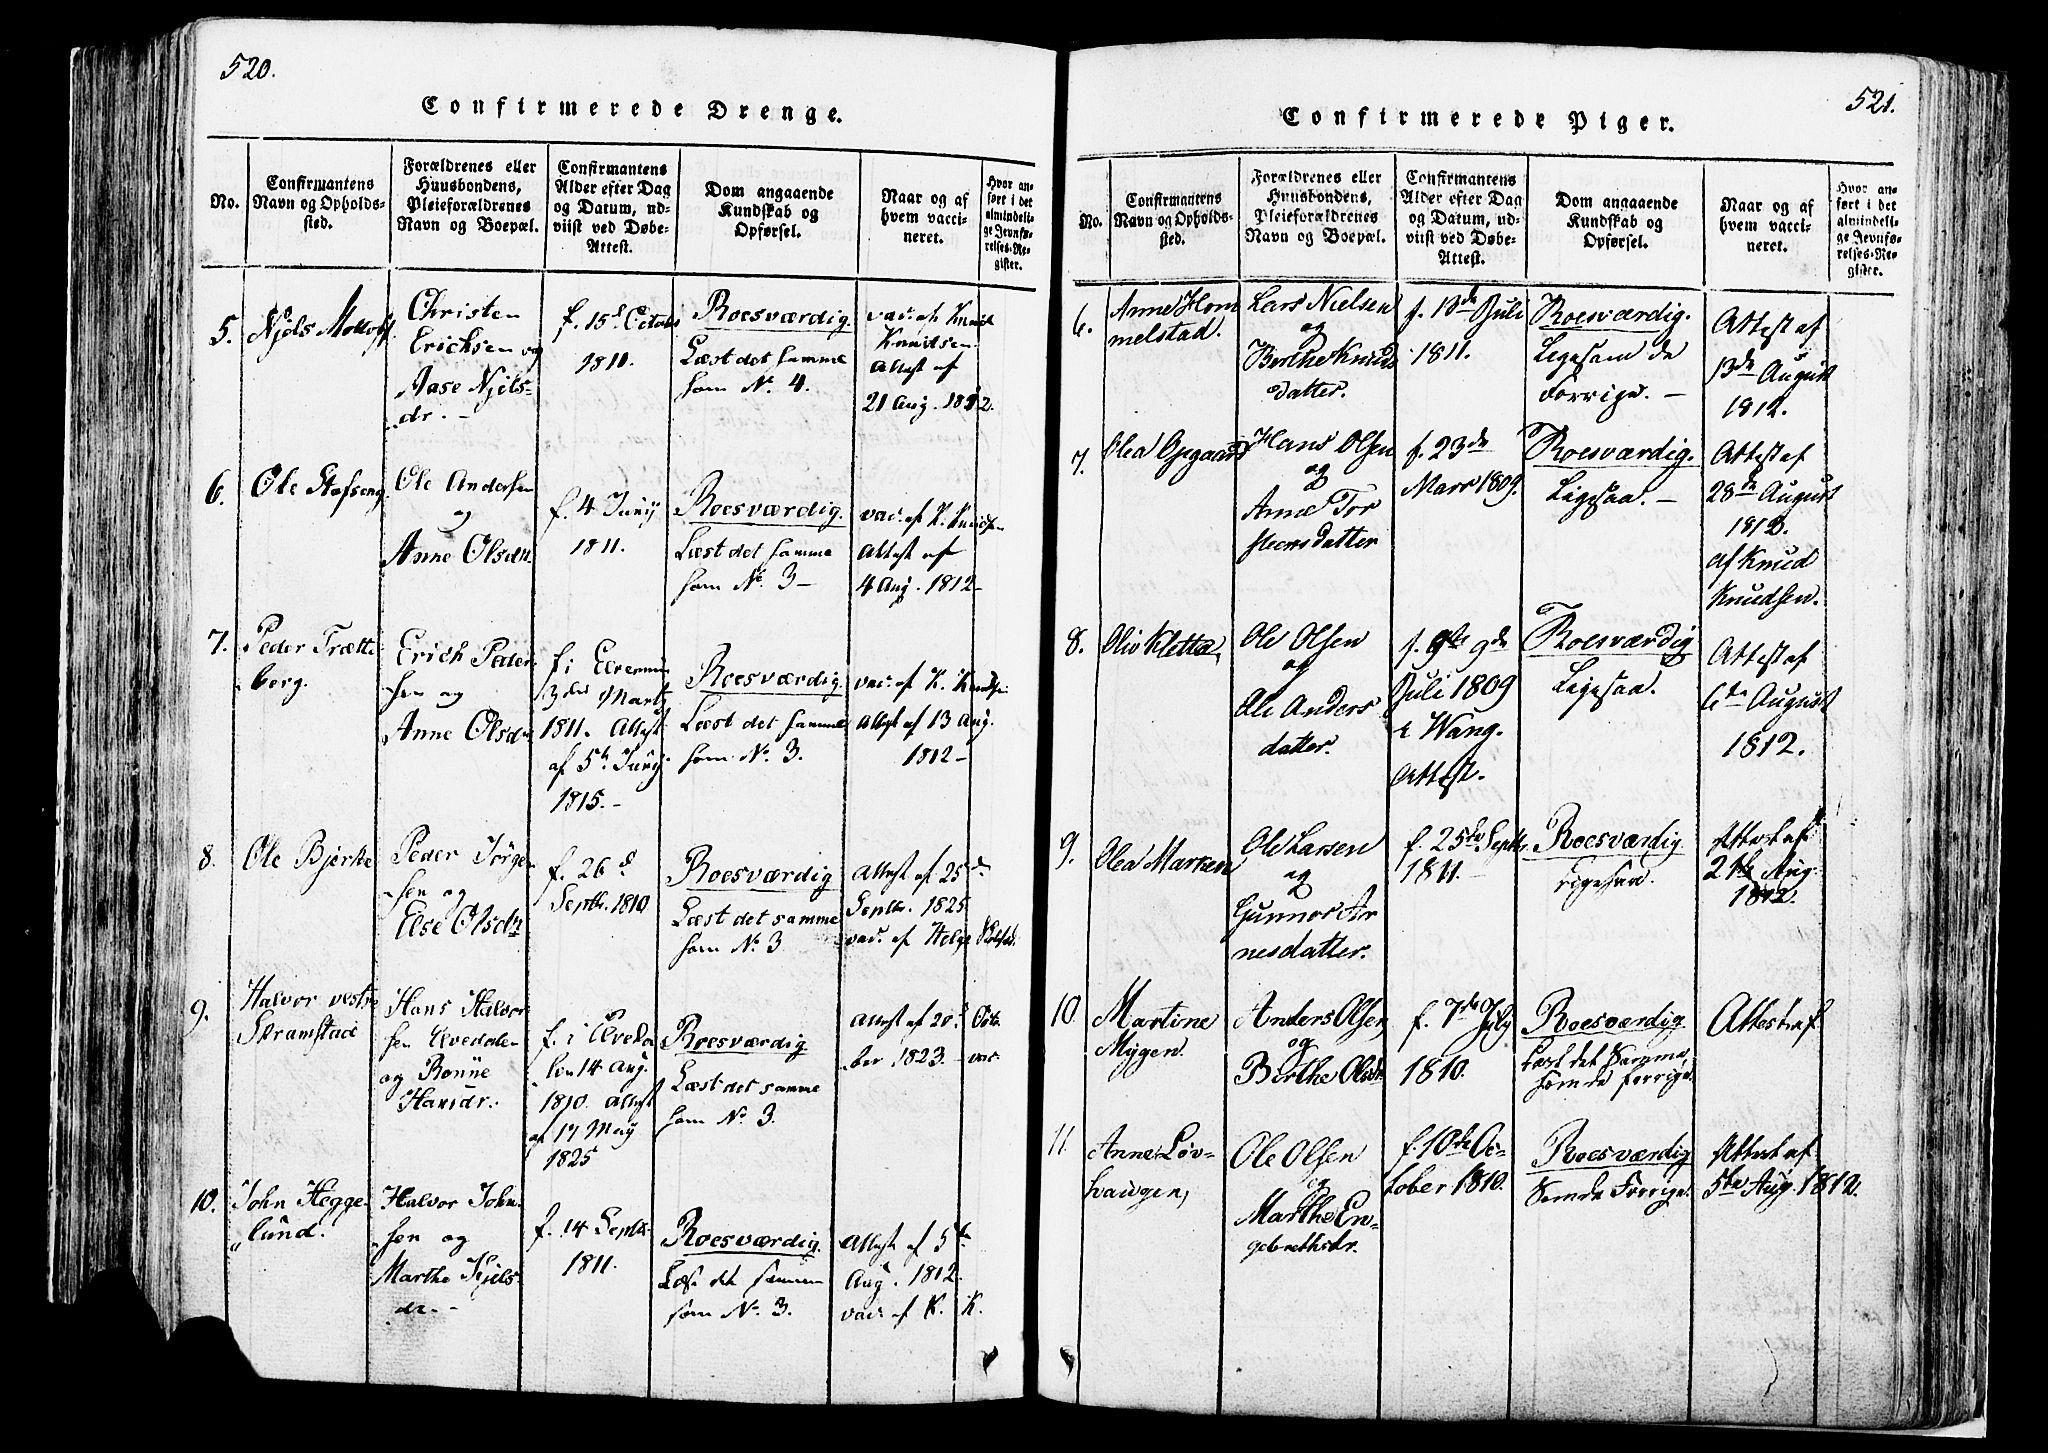 520.
Confirmerede Drenge.
No.
Confirmantens
Navn og Opholds-
sted.
Forældrenes eller
Huusbondens,
Pleieforældrenes
Navn og Boepæl.
Confirmantens
Alder efter Dag
og Datum, ud-
viist ved Døbe-
Attest.
Dom angaaende
Kundskab og
Opførsel.
Naar og af
hvem vacci-
neret.
Hvor an-
ført i det
almindeli-
ge Jevnfø-
relses-Re-
gister.
5.
Njels
Christen
Erichsen og
Aase Njels-
dr. -
f. 15d Octobr
1810.
Roesværdig.
Læst det samme
som No. 4.
vac. af Knud
Knudsen.
Attest af
21 Aug. 1812.
6.
Ole Stafseng
Ole Andersen
og
Anne Olsdr.
f. 4 Junij
1811.
Roesværdig.
Læst det samme
som No. 3 -
vac. af K. Knudsen
Attest af
4 Aug. 1812 -
7.
Peder Trætt-
berg.
Erich Peder-
sen og
Anne Olsdr
f. i Elverum
3de Martz
1811. Attest
af 5te Junij
1815. -
Roesværdig.
Læst det samme
som No. 3.
vac. af K. Knudsen
Attest af 13 Aug.
1812 -
8.
Ole Bjerke
Peder Jørgen-
sen og
Else Olsdr
f. 26d
Septbr. 1810
Roesværdig
Læst det samme
som No. 3
Attest af 25de
Septbr. 1825
vac. af Helge
9.
Halvor vestre
Skramstad
Hans Halvor-
sen Elvedalen
og Rønne
Hansdr.
f. i Elveda-
len 14 Aug.
1810. Attest
af 17 May
1825
Roesværdig
Læst det samme
som No. 3.
Attest af 20d Octo-
ber 1823. - vac.
10.
John Hegge-
lund.
Halvor John-
sen og
Marthe Kjels-
dr. -
f. 14 Septbr.
1811.
Roesværdig.
Læst det samme
som No. 3.
Attest af 5te
Aug. 1812.
vac. af K. K.
521.
Confirmerede Piger.
No.
Confirmantens
Navn og Opholds-
sted.
Forældrenes eller
Huusbondens,
Pleieforældrenes
Navn og Boepæl.
Confirmantens
Alder efter Dag
og Datum, ud-
viist ved Døbe-
Attest.
Dom angaaende
Kundskab og
Opførsel.
Naar og af
hvem vacci-
neret.
Hvor an-
ført i det
almindeli-
ge Jevnfø-
relses-Re-
gister.
6.
Anne Hom
melstad.
Lars Nielsen
og
Berthe Knuds
datter.
f. 13de Juli
1811.
Roesværdig.
Ligesom de
Forrige. -
Attest af
13de August
1812.
7.
Olea Opegaard
Hans Olsen
og
Anne Tor
steensdatter
f. 23de
Mars 1809.
Roesværdig.
Ligesaa. -
Attest af
28de August
1812.
af Knud
Knudsen.
8.
Oliv Kletta,
Ole Olsen
og
Oli Anders
datter.
f. 9de
Juli 1809
i Wang.
Attest.
Roesværdig
Ligesaa.
Attest af
6te August
1812.
9.
Olea
Ole Larsen
og
Gunnor Ar
nesdatter.
f. 25de Septbr.
1811.
Roesværdig
Ligesaa.
Attest af
21de Aug.
1812.
10
Martine
Mygen.
Anders Olsen
og
Berthe Olsdr
f. 7de July
1810.
Roesværdig
Læst det Samme,
som de forrige.
Attest af
11.
Anne Løv-
hougen,
Ole Olsen
og
Marthe En-
gebrethsdr.
f. 10de Oc-
tober 1810.
Roesværdig
Som de Forrige.
Attest af
5te Aug. 1812.